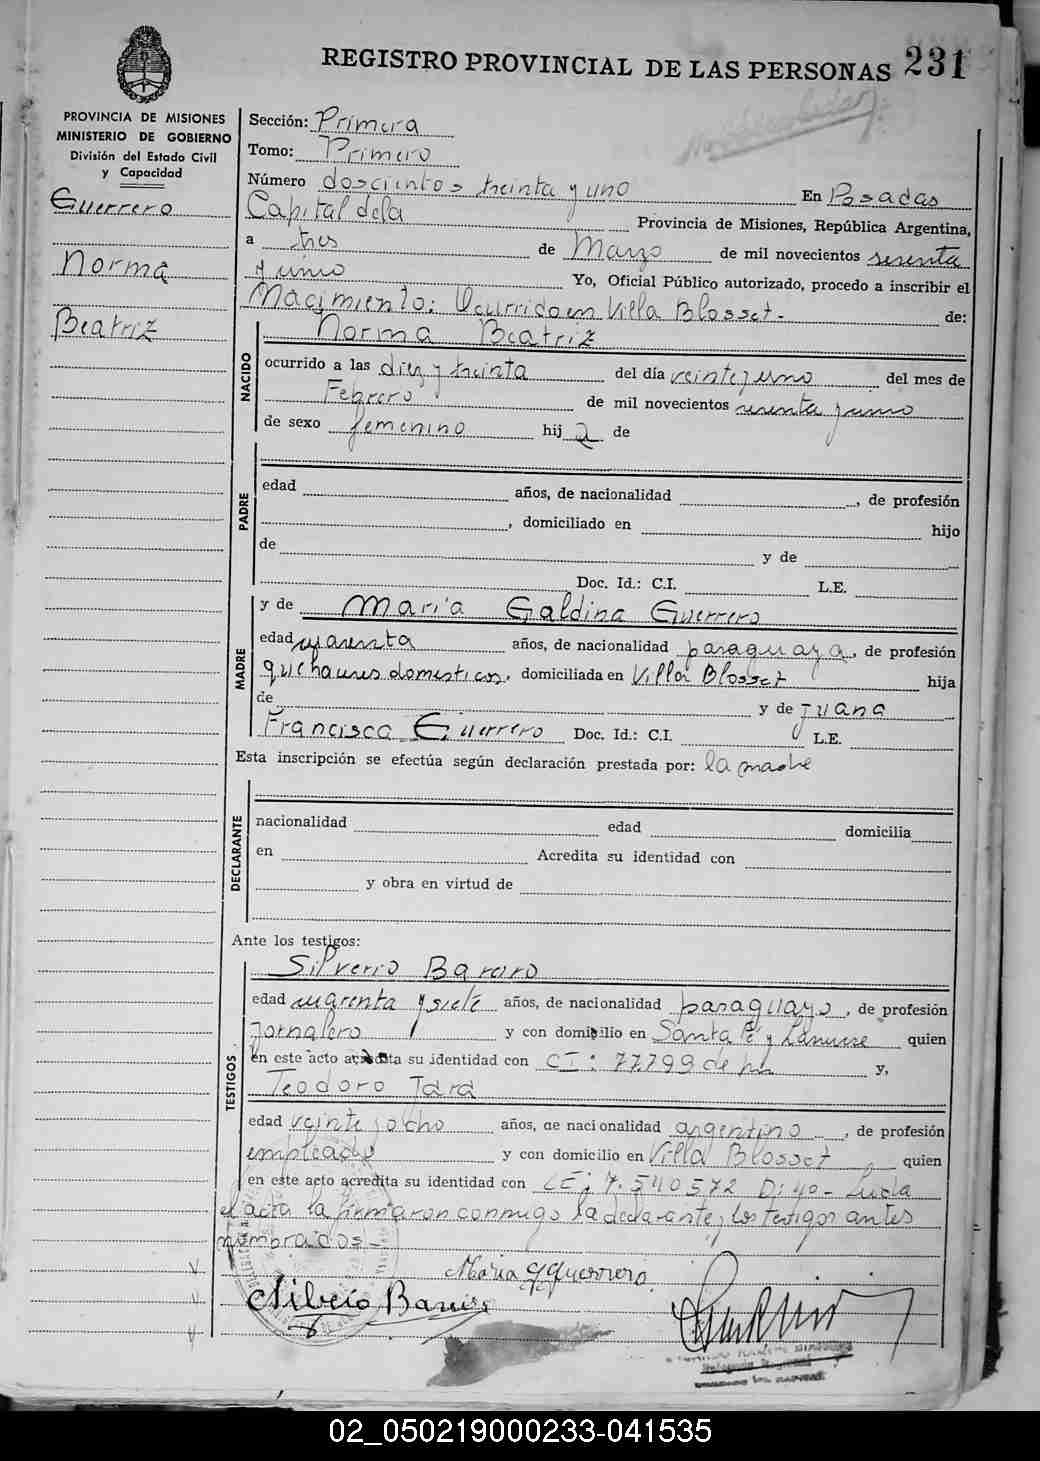 REGISTRO PROVINCIAL DE LAS PERSONAS 231
PROVINCIA DE MISIONES
MINISTERIO DE GOBIERNO
División del Estado Civil
y Capacidad
Guerrero
Norma
Beatriz
Sección: Primera
Tomo: Primero
Número doscientos treinta y uno En Posadas
Capital de la Provincia de Misiones, República Argentina,
a tres de Marzo de mil novecientos sesenta
y uno Yo, Oficial Público autorizado, procedo a inscribir el
Nacimiento: Ocurrido en Villa Blosset - de:
NACIDO
Norma Beatriz
ocurrido a las diez y treinta del día veintejuno del mes de
Febrero de mil novecientos sesenta y uno
de sexo femenino hij a de
PADRE
edad años, de nacionalidad , de profesión
, domiciliado en hijo
de y de
Doc. Id.: C.I. L.E.
MADRE
y de Maria Galdina Guerrero
edad cuarenta años, de nacionalidad paraguaya, de profesión
quehaceres domesticos, domiciliada en Villa Blosset hija
de y de Juana
Francisca Guerrero Doc. Id.: C.I. L.E.
Esta inscripción se efectúa según declaración prestada por: la madre
DECLARANTE
nacionalidad edad domicilia
en Acredita su identidad con
y obra en virtud de
Ante los testigos:
TESTIGOS
Silverio Bararo
edad cuarenta y siete años, de nacionalidad paraguayo, de profesión
Jornalero y con domicilio en Santa Fé y Lanusse quien
en este acto acredita su identidad con CI: 77.799 de y,
Teodoro Jara
edad veinte y ocho años, de nacionalidad argentino, de profesión
empleado y con domicilio en Villa Blosset quien
en este acto acredita su identidad con LE: 7.540572 D: 40 - Leida
el acta la firmaron conmigo la declarante, los testigos antes
nombrados -
Maria G Guerrero
02_050219000233-041535